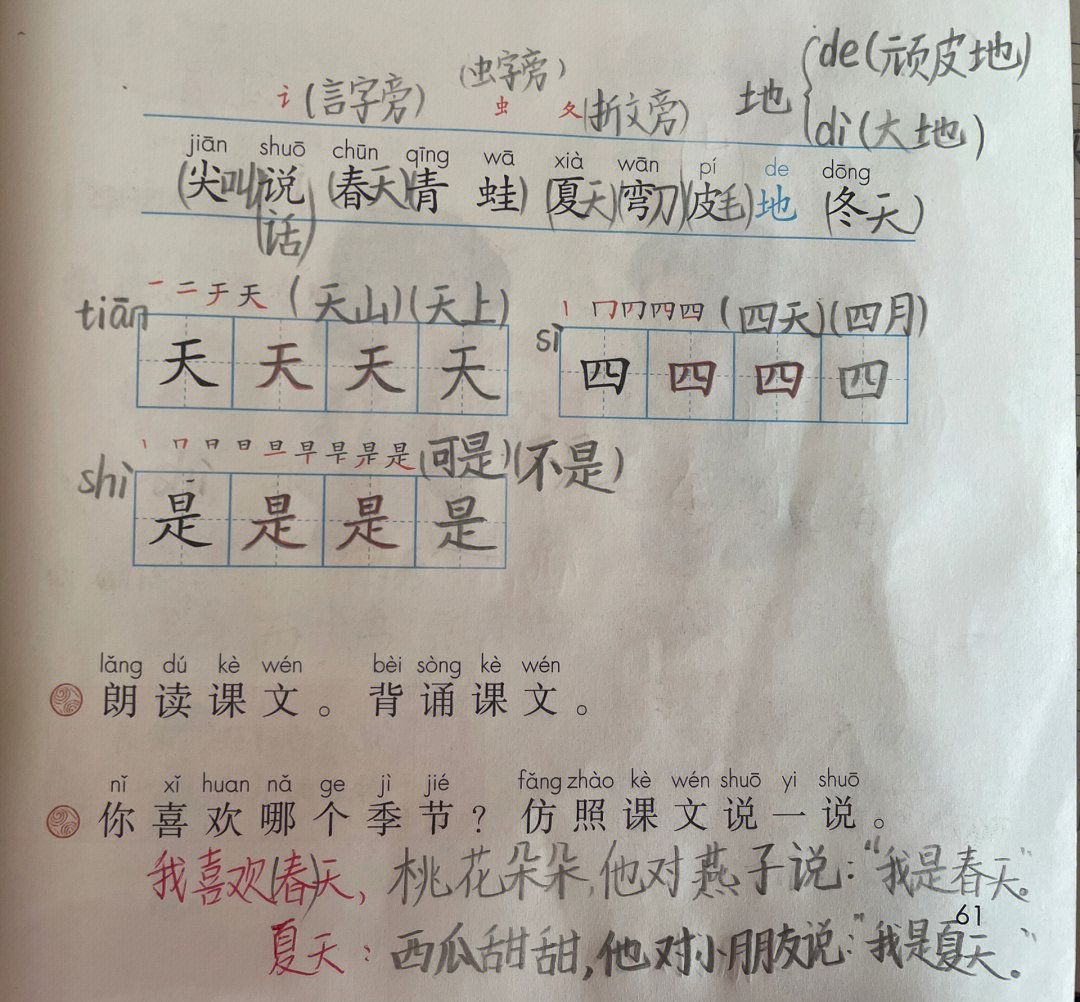 (虫字旁) de(顽皮地)
讠(言字旁) 虫 夂(折文旁) 地 dì(大地)
jiān shuō chūn qīng wā xià wān pí de dōng
(尖叫)(说 (春天)(青 蛙) (夏天)(弯刀)(皮毛)地 (冬天)
话)
tiān 一 二 于 天 (天山)(天上)
sì 丨 冂 四 四 四 (四天)(四月)
天 天 天 天
四 四 四 四
shì 丨 冂 日 日 旦 早 早 是 是 (可是)(不是)
是 是 是 是
lǎng dú kè wén bèi sòng kè wén
朗读课文。 背诵课文。
nǐ xǐ huan nǎ ge jì jié fǎng zhào kè wén shuō yi shuō
你喜欢哪个季节? 仿照课文说一说。
我喜欢(春)天,桃花朵朵,他对燕子说:“我是春天。”
61
夏天:西瓜甜甜,他对小朋友说:“我是夏天。”